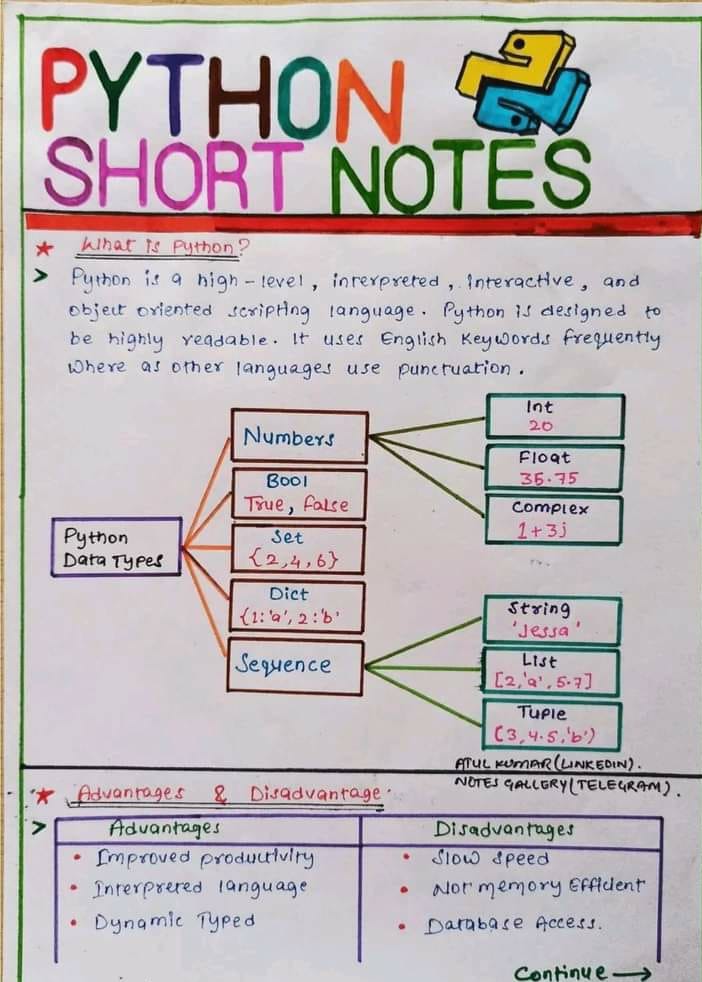 PYTHON
SHORT NOTES
What is Python?
Python is a high-level, interpreted, interactive, and
object oriented scripting language. Python is designed to
be highly readable. It uses English Keywords frequently
Where as other languages use punctuation.
Python
Data Types
Numbers
Int
20
Float
35.75
Complex
1+3j
Bool
True, False
Set
{2,4,6}
Dict
{1:'a', 2:'b'
Sequence
String
'Jessa'
List
[2,'a',5.7]
Tuple
(3,4.5,'b')
ATUL KUMAR(LINKEDIN).
NOTES GALLERY(TELEGRAM).
Advantages & Disadvantage
Advantages
• Improved productivity
• Interpreted language
• Dynamic Typed
Disadvantages
• Slow speed
• Not memory Efficient
• Database Access.
Continue →